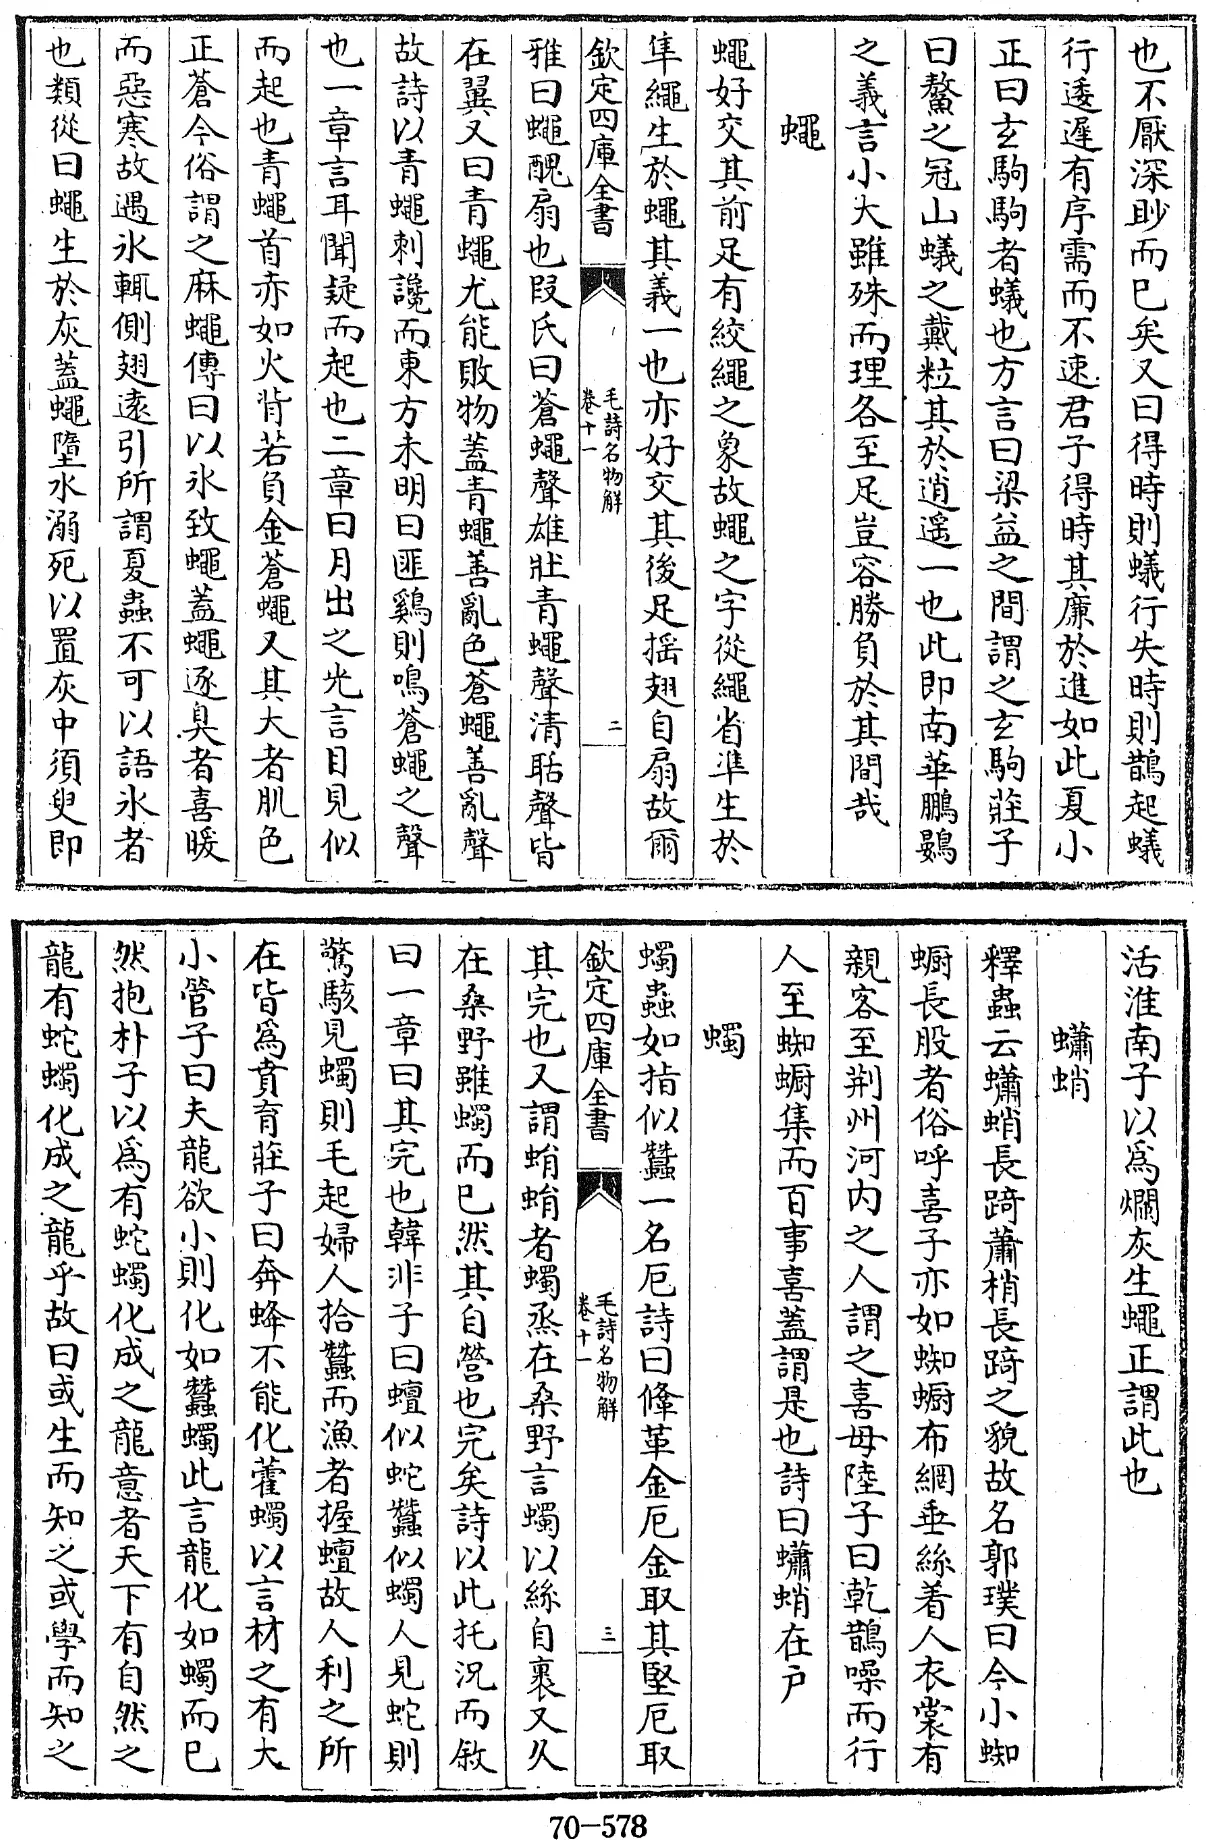 也不厭深眇而已矣又曰得時則蟻行失時則鵲起蟻
行逶遲有序需而不速君子得時其廉於進如此夏小
正曰玄駒駒者蟻也方言曰梁益之間謂之玄駒莊子
曰鰲之冠山蟻之戴粒其於逍遥一也此即南華鵬鷃
之義言小大雖殊而理各至足豈容勝負於其間哉
蠅
蠅好交其前足有絞繩之象故蠅之字從繩省準生於
隼繩生於蠅其義一也亦好交其後足揺翅自扇故爾
欽定四庫全書
毛詩名物解
卷十一
二
雅曰蠅醜扇也段氏曰蒼蠅聲雄壯青蠅聲清聒聲皆
在翼又曰青蠅尤能敗物蓋青蠅善亂色蒼蠅善亂聲
故詩以青蠅刺讒而東方未明曰匪鷄則鳴蒼蠅之聲
也一章言耳聞疑而起也二章曰月出之光言目見似
而起也青蠅首赤如火背若負金蒼蠅又其大者肌色
正蒼今俗謂之麻蠅傳曰以氷致蠅蓋蠅逐臭者喜暖
而惡寒故遇氷輒側翅遠引所謂夏蟲不可以語氷者
也類從曰蠅生於灰蓋蠅墮水溺死以置灰中須臾即
活淮南子以為爛灰生蠅正謂此也
蠨蛸
釋蟲云蠨蛸長踦蕭梢長踦之貌故名郭璞曰今小蜘
蟵長股者俗呼喜子亦如蜘蟵布網垂絲着人衣裳有
親客至荆州河内之人謂之喜母陸子曰乾鵲噪而行
人至蜘蟵集而百事喜蓋謂是也詩曰蠨蛸在户
蠋
蠋蟲如指似蠶一名厄詩曰鞗革金厄金取其堅厄取
欽定四庫全書
毛詩名物解
卷十一
三
其完也又謂蜎蜎者蠋烝在桑野言蠋以絲自裹又久
在桑野雖蠋而已然其自營也完矣詩以此托況而敘
曰一章曰其完也韓非子曰蟺似蛇蠶似蠋人見蛇則
驚駭見蠋則毛起婦人拾蠶而漁者握蟺故人利之所
在皆為賁育莊子曰奔蜂不能化藿蠋以言材之有大
小管子曰夫龍欲小則化如蠶蠋此言龍化如蠋而已
然抱朴子以為有蛇蠋化成之龍意者天下有自然之
龍有蛇蠋化成之龍乎故曰或生而知之或學而知之
70-578